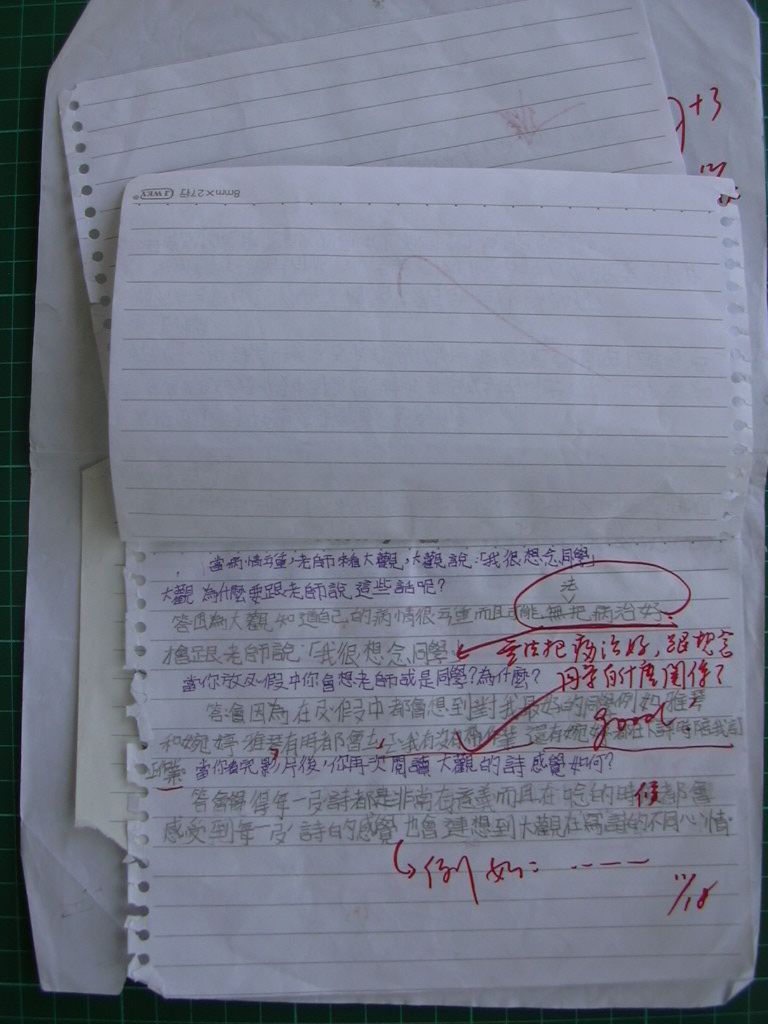 +3
8mm×27行
當病情嚴重,老師來看大觀,大觀說:「我很想念同學」
大觀為什麼要跟老師說這些話呢?
法
答:因為大觀知道自己的病情很嚴重而且可能無把病治好
才會跟老師說:「我很想念同學」
無法把病治好,跟想念
同學有什麼關係?
當你放反假中你會想老師或是同學?為什麼?
答:會因為在反假中都會想到對我最好的同學例如雅琴
和婉婷 雅琴有時都會 我有沒有 作業 還有婉婷 都在下課時陪我訂
good
正作業 當你看完影片後,你再次閱讀大觀的詩感覺如何?
答:會覺得每一引詩都是非常有意義而且在唸的時候都會
感受到每一引詩的感覺也會連想到大觀在寫詩的不同心情.
例如: ----
11/18